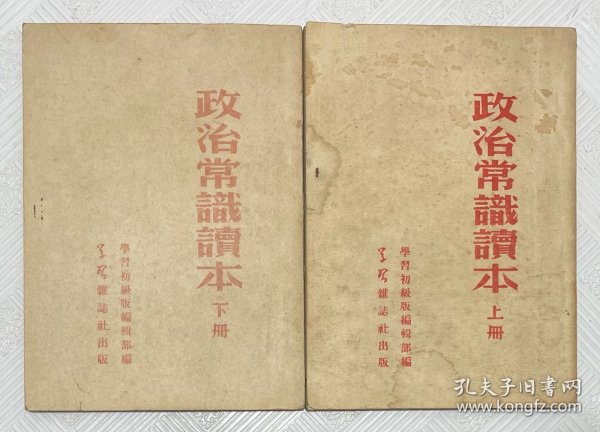 政治常識讀本
上冊
學習初級版編輯部編
學習雜誌社出版
政治常識讀本
下冊
學習初級版編輯部編
學習雜誌社出版
孔夫子旧书网
www.kongfz.com